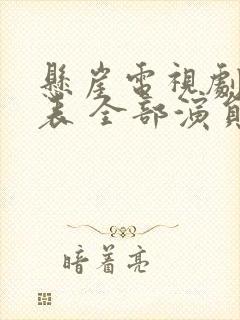 懸崖電視劇
表 全部演員
暗著亮